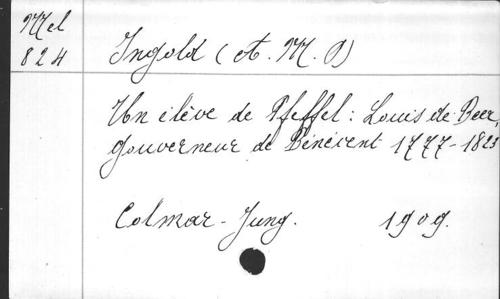 Mel
824
Ingold (A. M. P)
Un élève de Pfeffel : Louis de Beer,
gouverneur de Bénévent 1777-1823
Colmar - Jung. 1909.